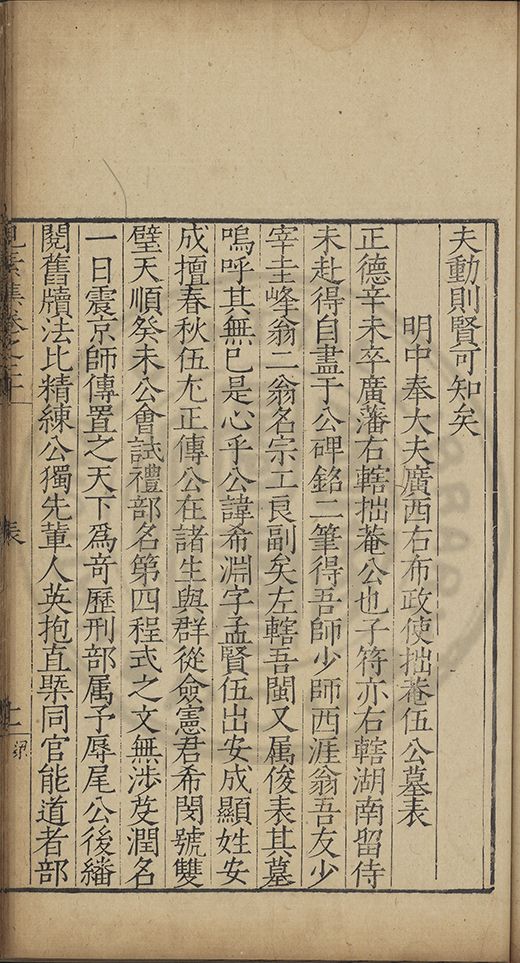 夫動則賢可知矣
明中奉大夫廣西右布政使拙菴伍公墓表
正德辛未卒廣藩右轄拙菴公也子符亦右轄湖南留侍
未赴得自盡于公碑銘二筆得吾師少師西涯翁吾友少
宰圭峰翁二翁名宗工良副矣左轄吾閩又属俊表其墓
嗚呼其無已是心乎公諱希淵字孟賢伍出安成顯姓安
成擅春秋伍尤正傳公在諸生與群從僉憲君希閔號雙
璧天順癸未公會試禮部名第四程式之文無涉芟潤名
一日震京師傳置之天下爲竒歷刑部属予辱尾公後繙
閱舊牘法比精練公獨先軰人英抱直槩同官能道者部
見素集卷之二
表
上